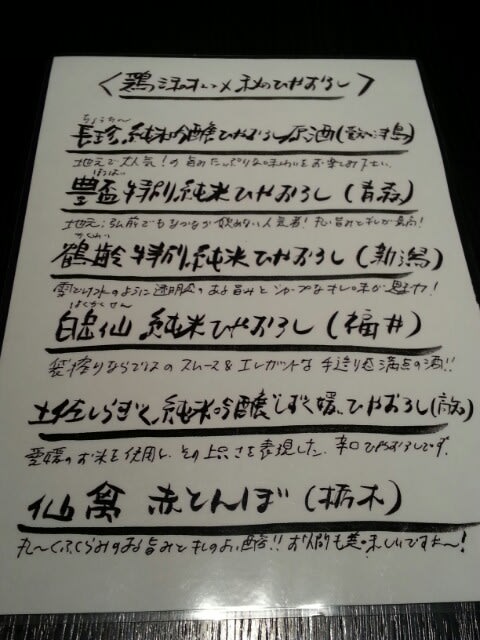 〈鶏 オススメ 秋のひやおろし〉
ちょうちん
長珍 純米吟醸ひやおろし原酒(津島)
地元で大人気!の旨みたっぷりな味わいをお楽しみ下さい。
ほうはい
豊盃 特別純米ひやおろし(青森)
地元:弘前でもなかなか飲めない人気者!丸い旨みとキレが最高!
かくれい
鶴齢 特別純米ひやおろし(新潟)
雪どけ水のように透明感のある旨みとシャープなキレ味が魅力!
はくがくせん
白岳仙 純米ひやおろし(福井)
袋搾りならではのスムース&エレガントな手造り感満点の酒!!
土佐しらぎく 純米吟醸 しずく媛 ひやおろし(高知)
愛媛のお米を使用し、その上品さを表現した、辛口ひやおろしです。
仙禽 赤とんぼ(栃木)
丸〜くふくらみのある旨みとキレのよい酸!!お燗も美味しいですよ〜!